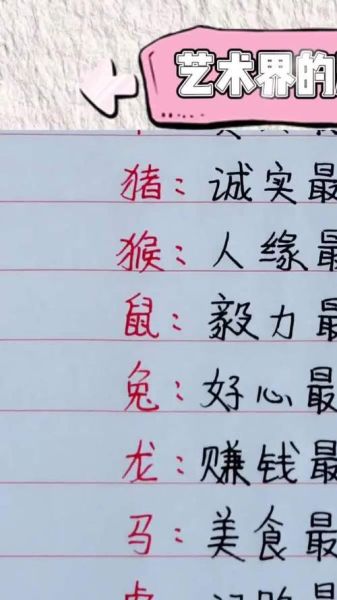 艺术界的
猪：诚实最
猴：人缘最
鼠：毅力最
兔：好心最
龙：赚钱最
马：美食最